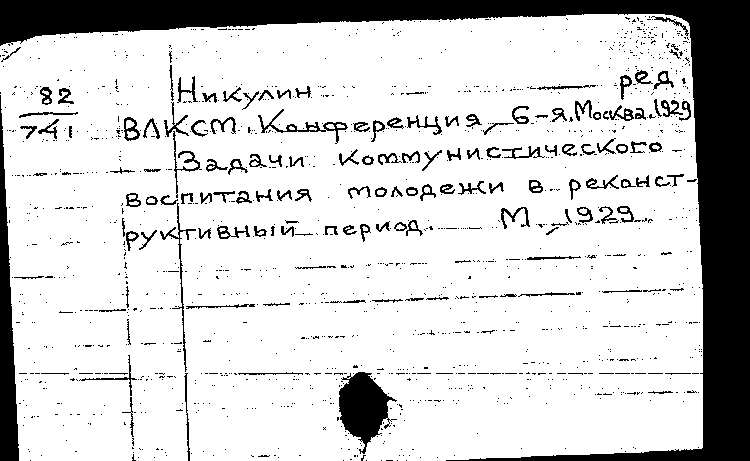 Никулин ред.
82
741
ВЛКСМ. Конференция, 6-я. Москва. 1929
Задачи коммунистического
воспитания молодежи в реконст-
руктивный период. М., 1929